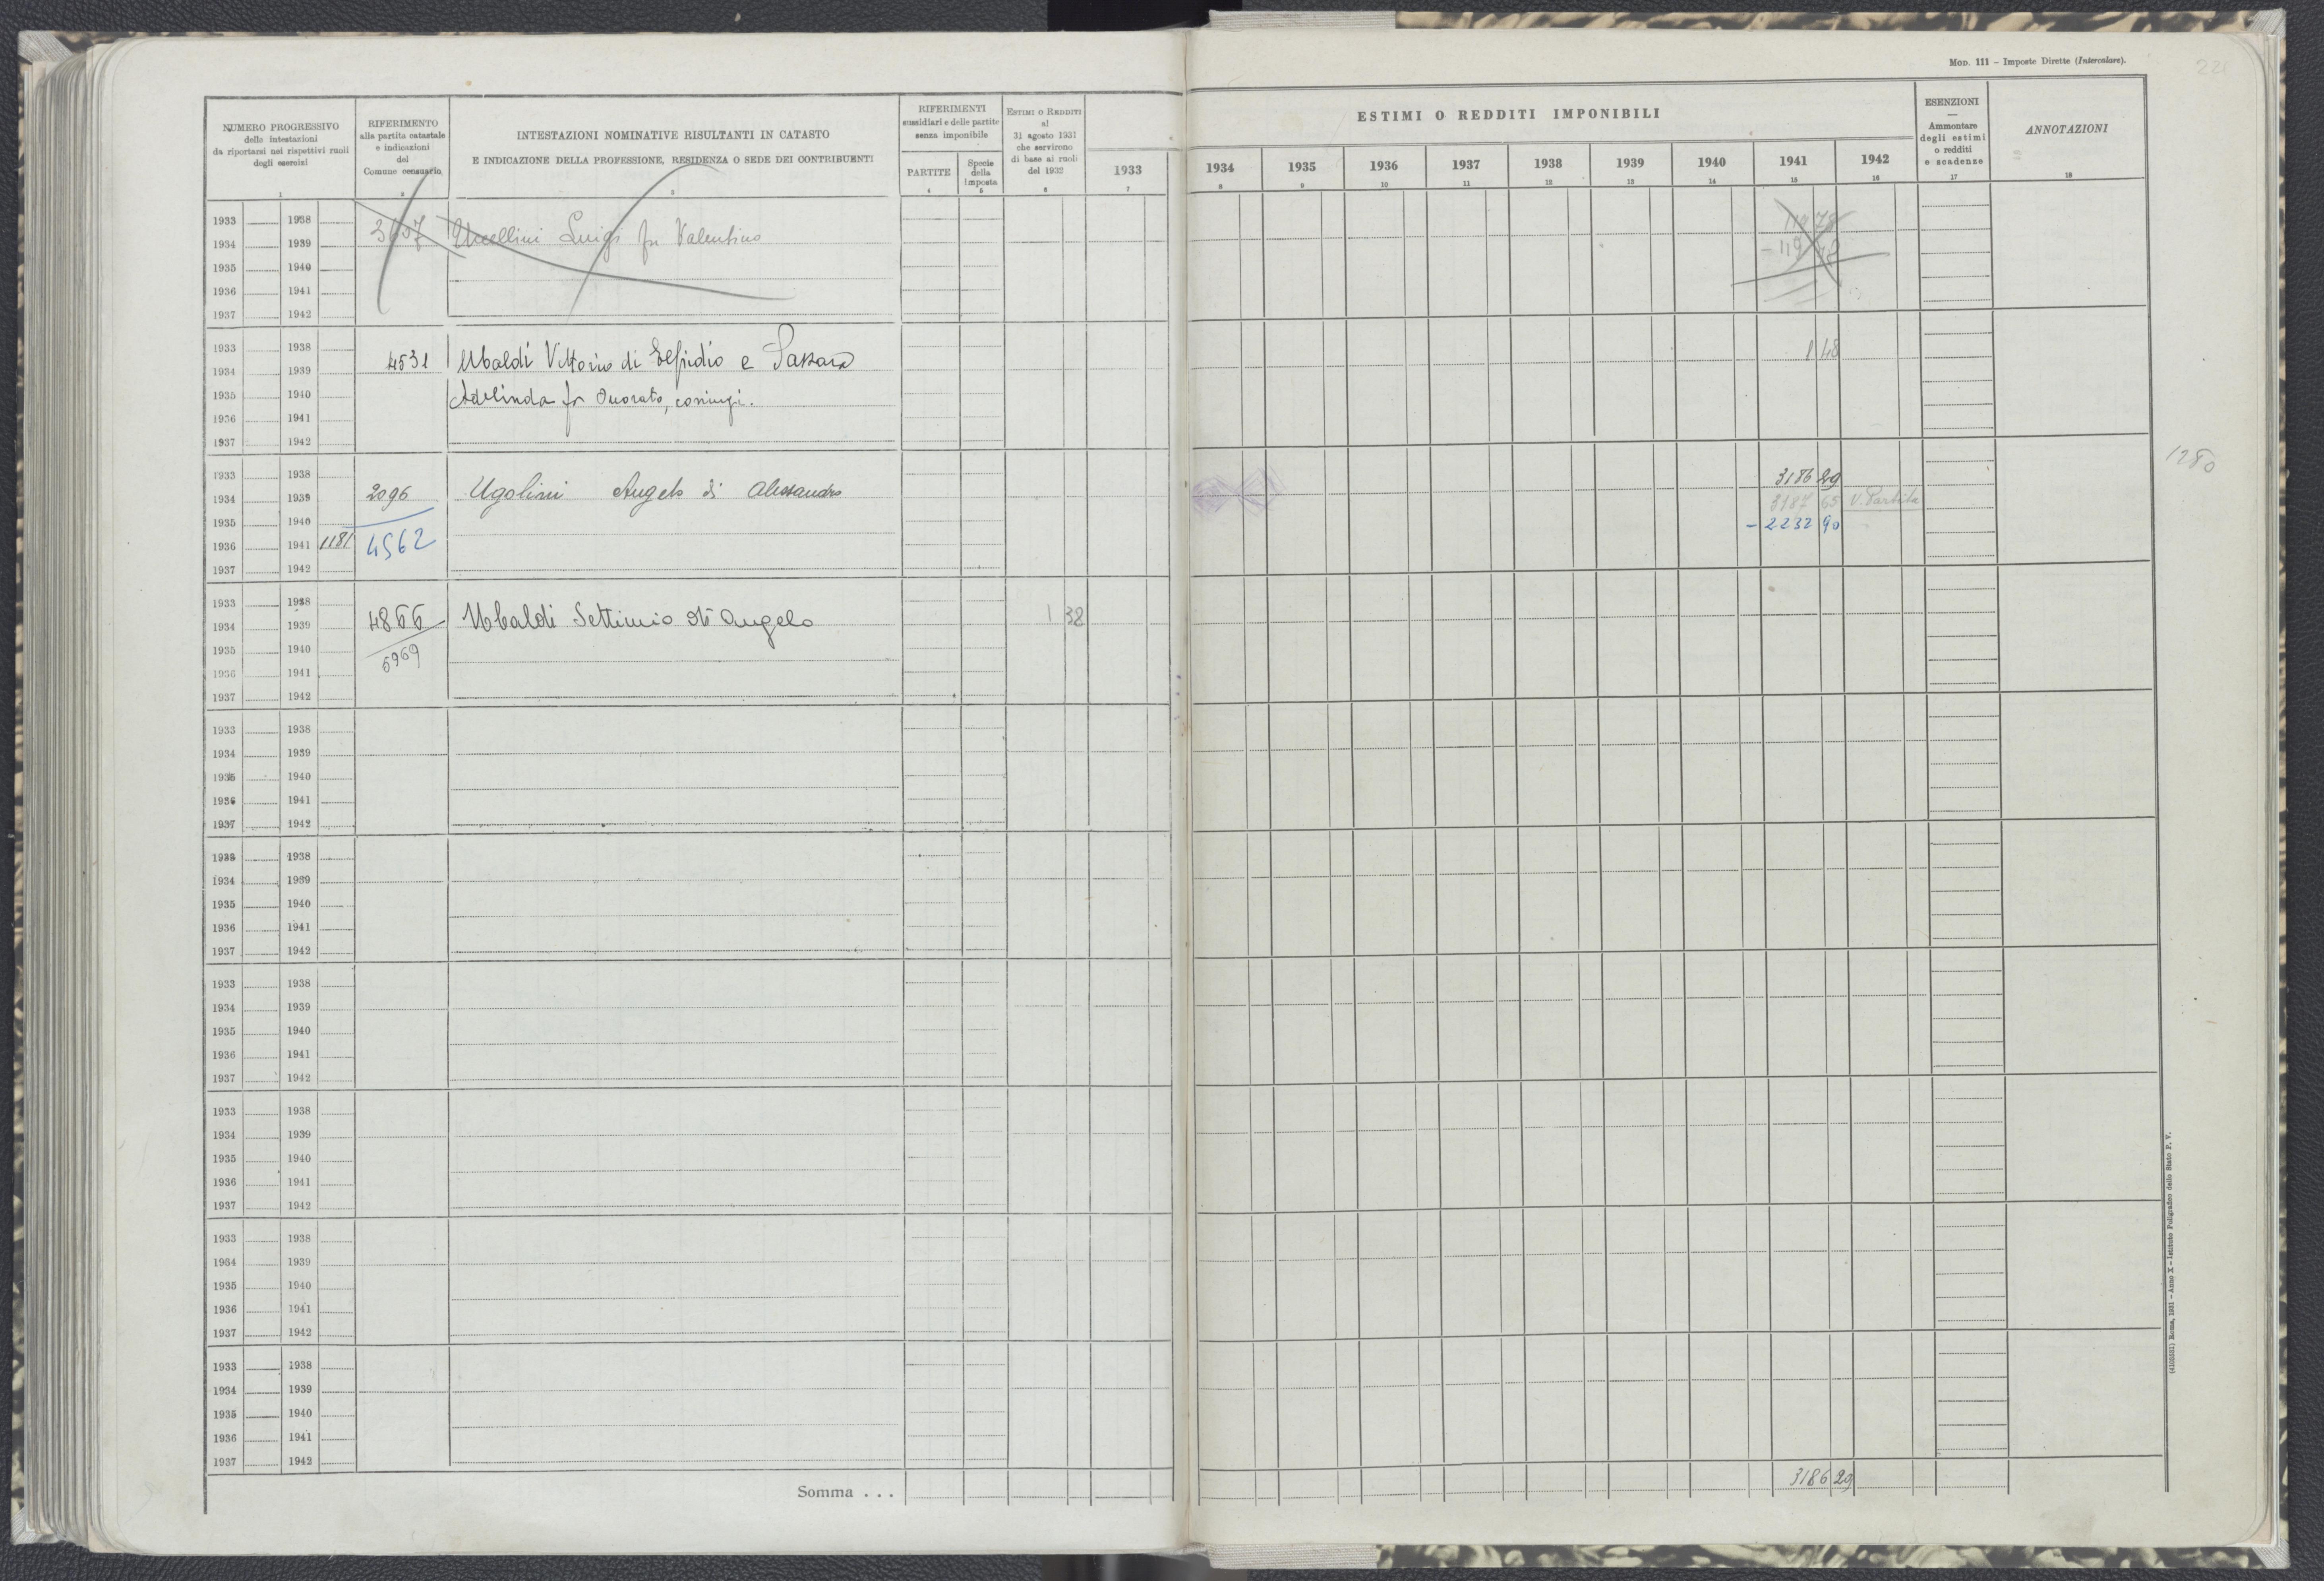 Mod. 111 – Imposte Dirette (Intercalare).
221
NUMERO PROGRESSIVO
delle intestazioni
da riportarsi nei rispettivi ruoli
degli esercizi
1
RIFERIMENTO
alla partita catastale
e indicazioni
del
Comune censuario
2
INTESTAZIONI NOMINATIVE RISULTANTI IN CATASTO
E INDICAZIONE DELLA PROFESSIONE, RESIDENZA O SEDE DEI CONTRIBUENTI
3
RIFERIMENTI
sussidiari e delle partite
senza imponibile
PARTITE
4
Specie
della
imposta
5
Estimi o Redditi
al
31 agosto 1931
che servirono
di base ai ruoli
del 1932
6
ESTIMI O REDDITI IMPONIBILI
1933 1934 1935 1936 1937 1938 1939 1940 1941 1942
7 8 9 10 11 12 13 14 15 16
ESENZIONI
—
Ammontare
degli estimi
o redditi
e scadenze
17
ANNOTAZIONI
18
1933 1938
1934 1939 Luigi fu Valentino
1935 1940
1936 1941
1937 1942
1933 1938
1934 1939 4531 Ubaldi Vittorio di Elpidio e 1 48
1935 1940 Adelinda fu Onorato, coniugi.
1936 1941
1937 1942
1933 1938 3186 29
1934 1939 2096 Ugolini Angelo di Alessandro 3187 65 V. Partita
1935 1940 - 2232 90
1936 1941 1181 4562
1937 1942
1280
1933 1938
1934 1939 4866 Ubaldi Settimio di Angelo 1 32
1935 1940 6969
1936 1941
1937 1942
1933 1938
1934 1939
1935 1940
1936 1941
1937 1942
1933 1938
1934 1939
1935 1940
1936 1941
1937 1942
1933 1938
1934 1939
1935 1940
1936 1941
1937 1942
1933 1938
1934 1939
1935 1940
1936 1941
1937 1942
1933 1938
1934 1939
1935 1940
1936 1941
1937 1942
1933 1938
1934 1939
1935 1940
1936 1941
1937 1942
Somma . . . 3186 29
(4103531) Roma, 1931 – Anno X – Istituto Poligrafico dello Stato P. V.